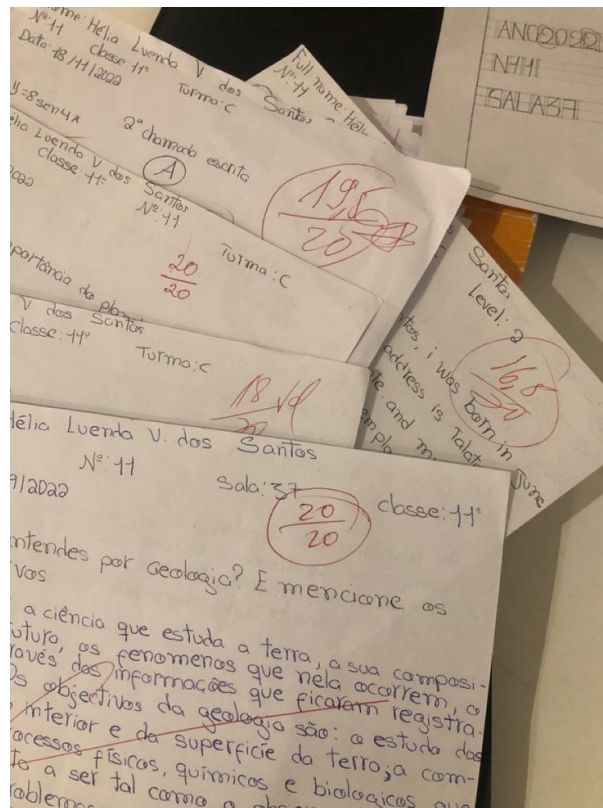 ome: Hélia Luenda V. dos Santos
Nº: 11 Classe: 11ª Turma: C
Data: 18/11/2022
2ª chamada escrita
y=8sen4x
A
19,5
20
Full name: Hélia
Nº: 11
ANO2021
Nº11
SALA37
élia Luenda V. dos Santos
Classe: 11ª Nº: 11
2022 Turma: C
20
20
portância da
V. dos Santos
classe: 11ª Turma: C
18
20
Santos
Level: 2
16,5
20
tos, i was born in June
address is Talat
te and m
Hélia Luenda V. dos Santos
Nº: 11 Sala: 37 classe: 11ª
9/2022
20
20
ntendes por Geologia? E mencione os
vos
a ciência que estuda a terra, a sua composi-
uturo, os fenomenos que nela ocorrem, o
ravés das informações que ficaram registra-
Os objectivos da geologia são: o estudo das
interior e da superfície da terra; a com-
ocessos físicos, químicos e biologicos que
to a ser tal como a
roblemas